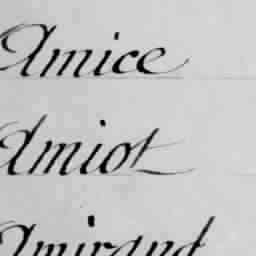 Amice
Amiot
Amirand